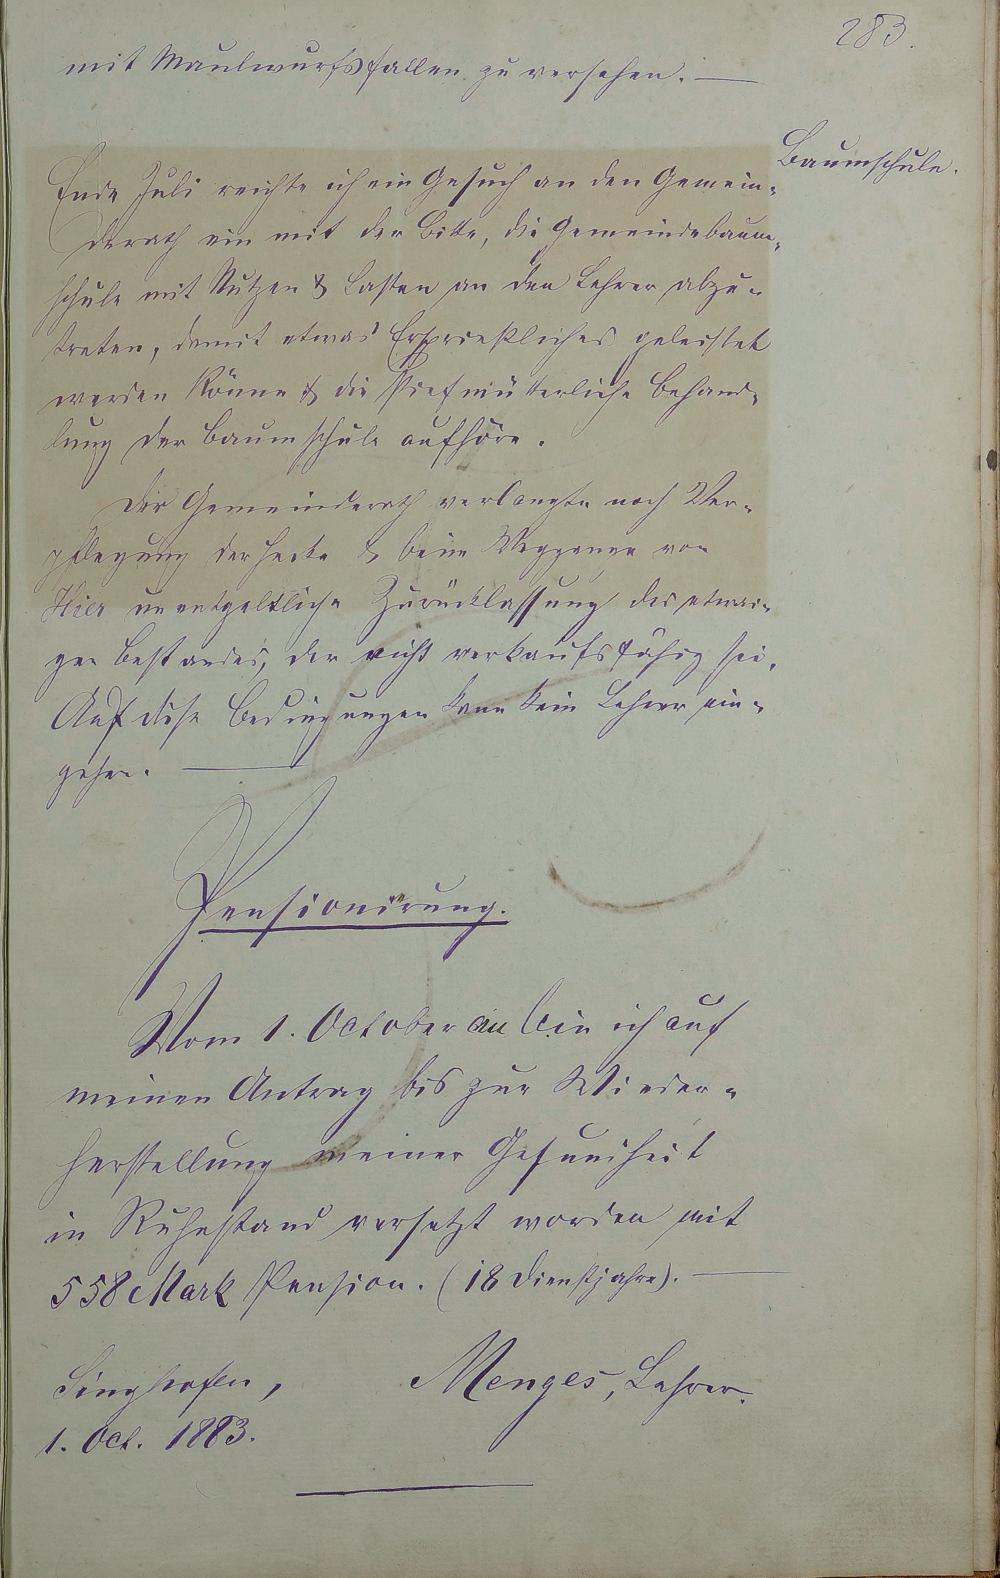 283.
mit Maulwurfsfallen zu versehen. —
Baumschule.
Ende Juli reichte ich ein Gesuch an den Gemein-
derath ein mit der Bitte, die Gemeindebaum-
schule mit Nutzen & Lasten an den Lehrer abzu-
treten, damit etwas Ersprießliches geleistet
werden könne & die stiefmütterliche Behand-
lung der Baumschule aufhöre.
Der Gemeinderath verlangte noch Ver-
pflegung der Hecke & beim Weggange von
Hier unentgeltliche Zurücklassung des etwai-
gen Bestandes, der nicht verkaufsfähig sei.
Auf diese Bedingungen kann kein Lehrer ein-
gehen. —
Pensionirung.
Vom 1. October an bin ich auf
meinen Antrag bis zur Wieder-
herstellung meiner Gesundheit
in Ruhestand versetzt worden mit
558 Mark Pension. (18 Dienstjahre). —
Singhofen, Menges, Lehrer.
1. Oct. 1883.